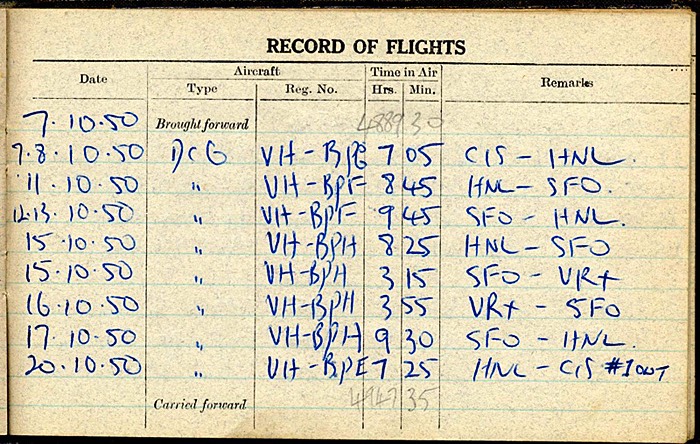 RECORD OF FLIGHTS
Date Aircraft Time in Air Remarks
Type Reg. No. Hrs. Min.
7.10.50 Brought forward 4889 30
7.8.10.50 DC6 VH-BPE 7 05 CIS - HNL.
11.10.50 " VH-BPF 8 45 HNL - SFO.
12.13.10.50 " VH-BPF 9 45 SFO - HNL.
15.10.50 " VH-BPH 8 25 HNL - SFO
15.10.50 " VH-BPH 3 15 SFO - VR+
16.10.50 " VH-BPH 3 55 VR+ - SFO
17.10.50 " VH-BPH 9 30 SFO - HNL.
20.10.50 " VH-BPE 7 25 HNL - CIS #1 OUT
Carried forward 4947 35